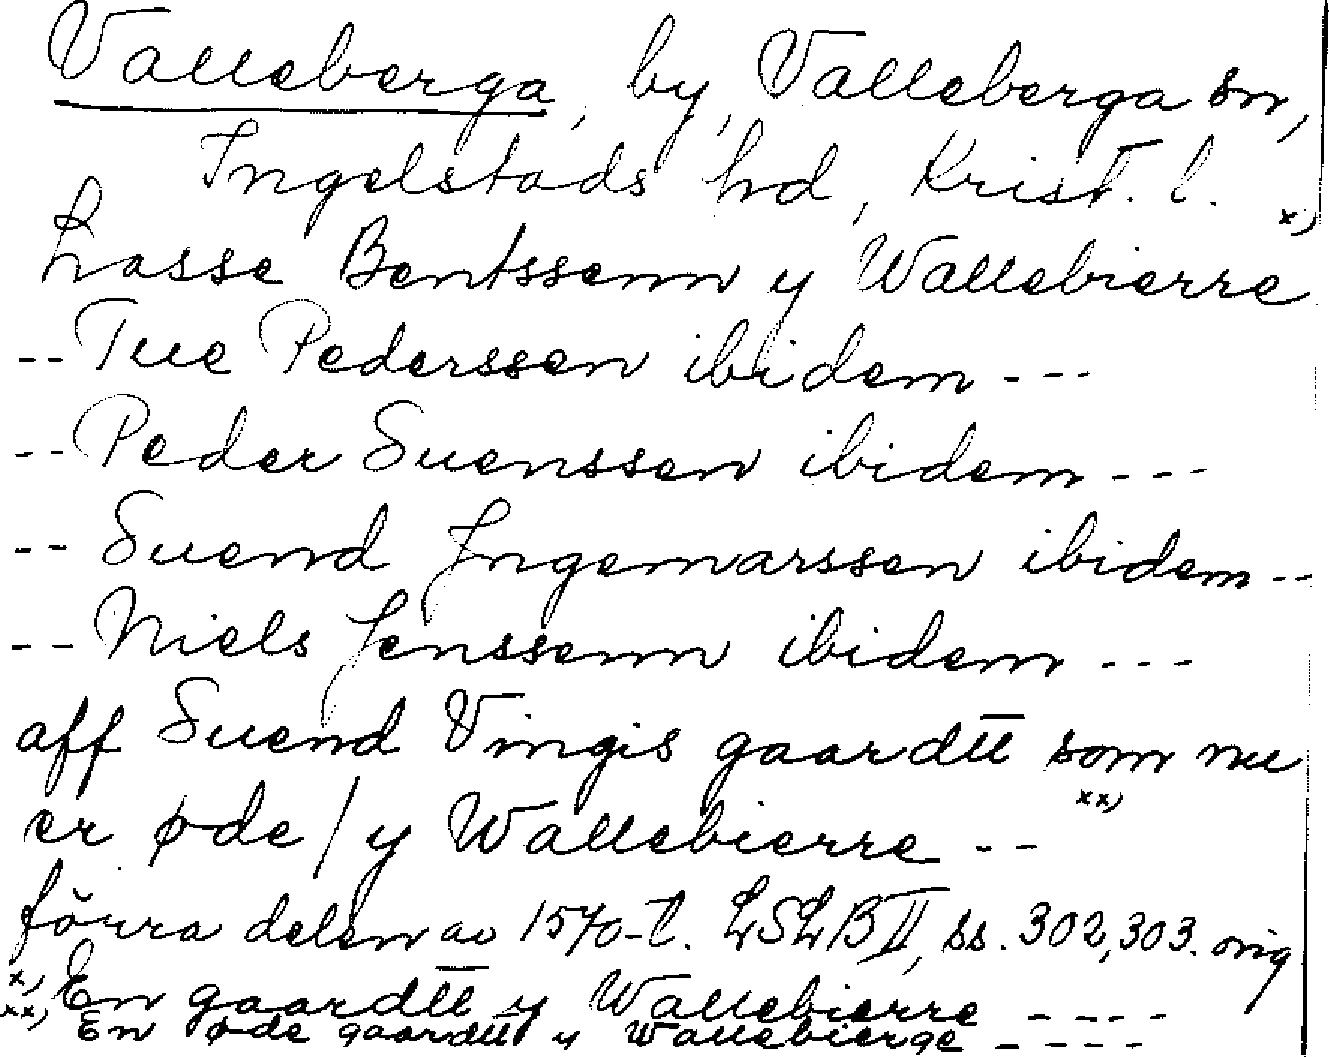 Valleberga, by, Valleberga sn,
Ingelstads hd, Krist. l.
Lasse Bentssenn y Wallebierre x)
-- Tue Pederssen ibidem ---
-- Peder Suenssen ibidem ---
-- Suend Ingemarssen ibidem --
-- Niels Jenssenn ibidem ---
aff Suend Vingis gaardtt som nu
er øde / y Wallebierre xx) --
förra delen av 1570-t. LSLB II, ss. 302, 303. orig
x) En gaardtt y Wallebierre ----
xx) En øde gaardtt y Wallebierge ----